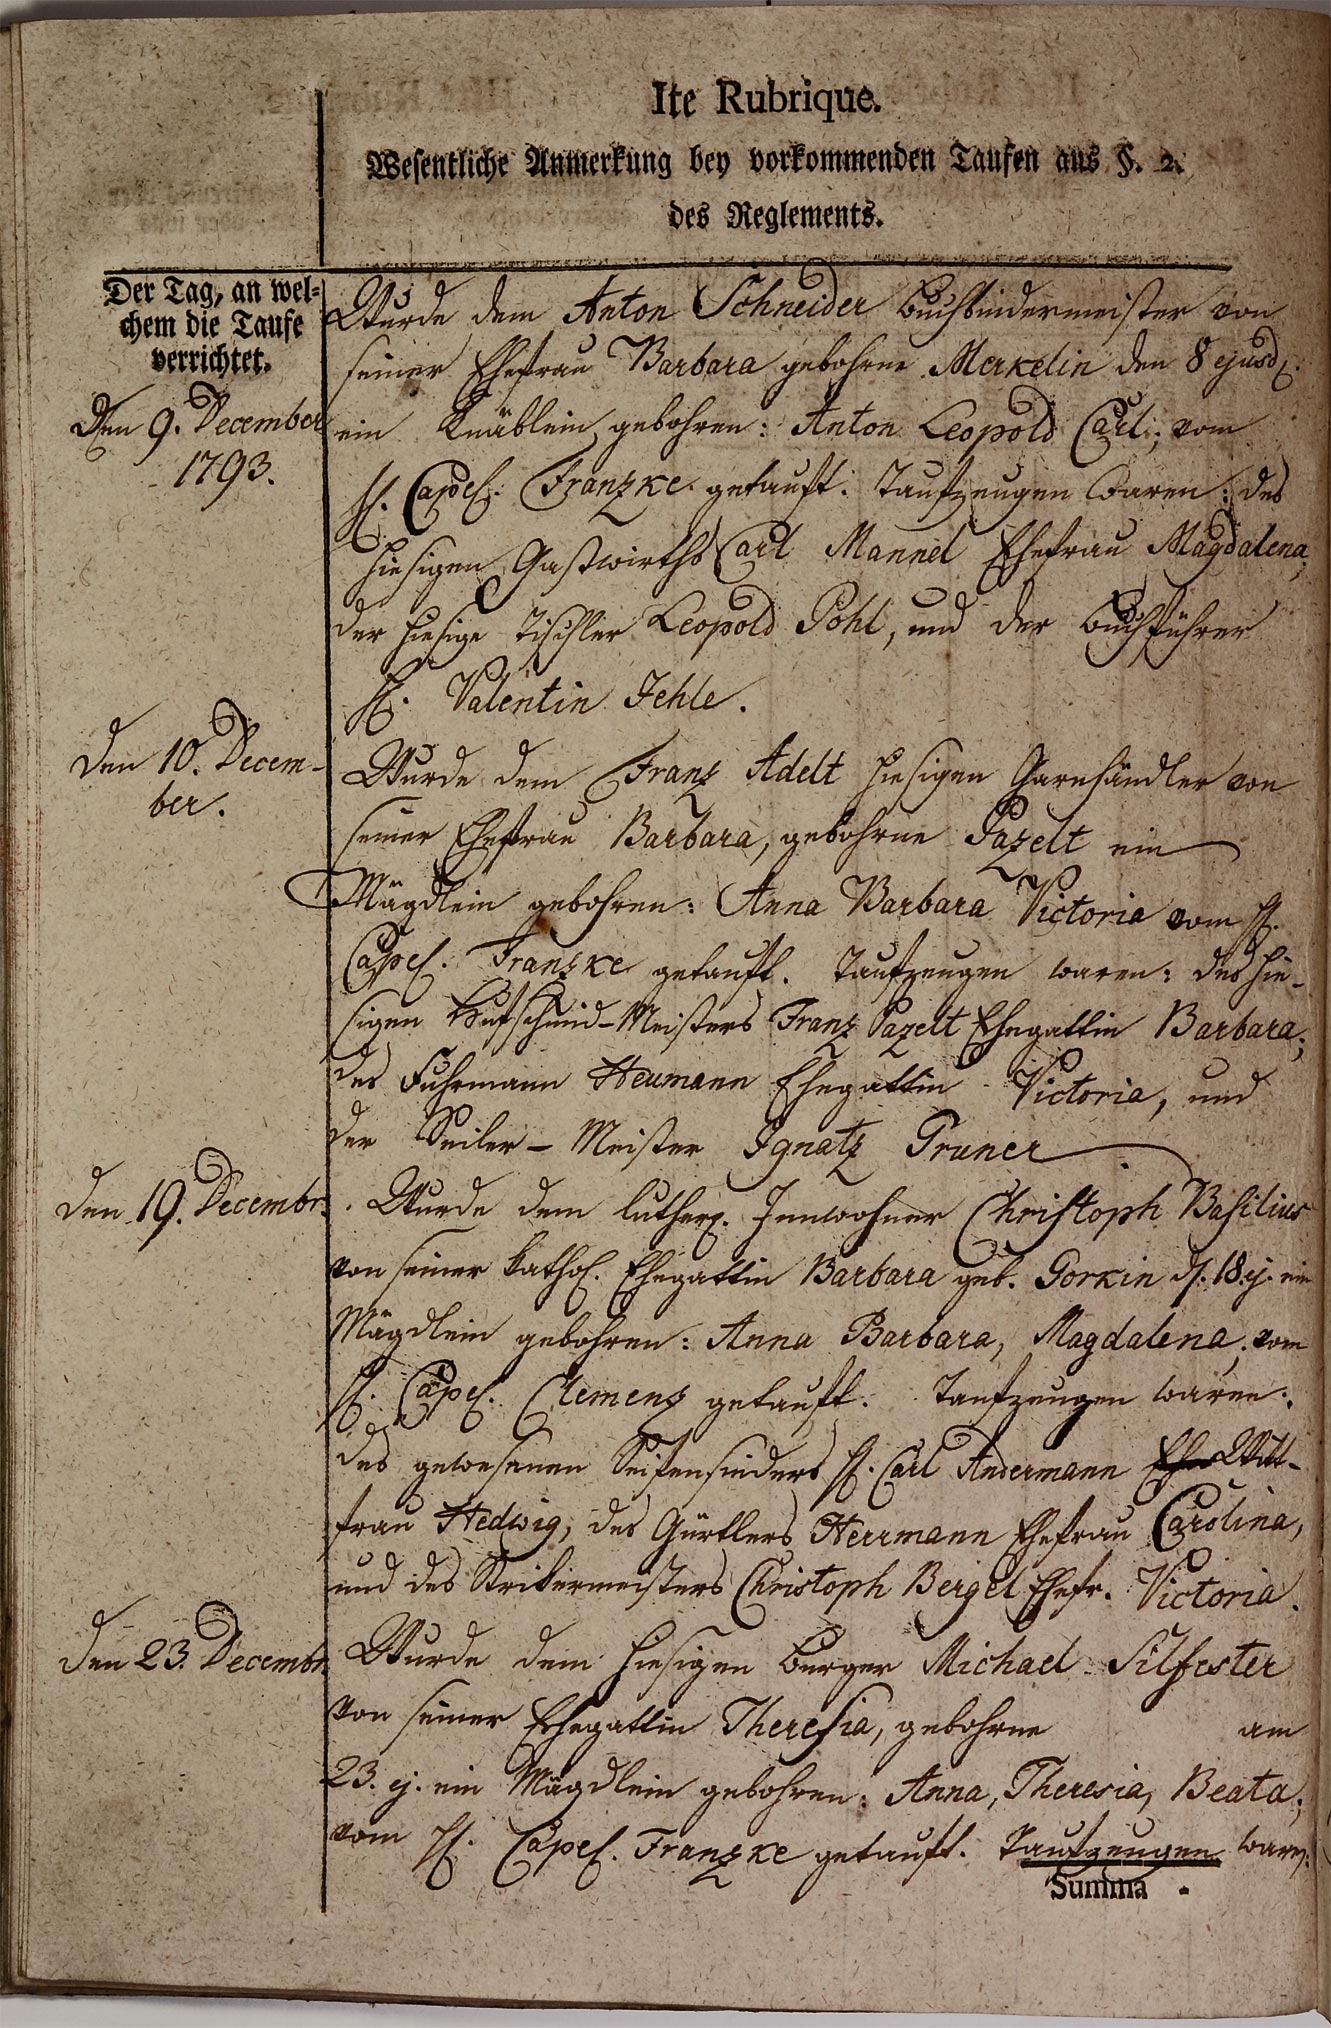 Ite Rubrique.
Wesentliche Anmerkung bey vorkommenden Taufen aus §. 2.
des Reglements.
Der Tag, an wel-
chem die Taufe
verrichtet.
Den 9. December
1793.
Wurde dem Anton Schneider Buchbindermeister von
seiner Ehefrau Barbara gebohrne Merkelin den 8 ejusd.
ein Knäblein gebohren: Anton Leopold Carl; vom
H. Capel. Franzke getauft. Taufzeugen waren: des
hiesigen Gastwirths Carl Mannel Ehefrau Magdalena;
der hiesige Tischler Leopold Pohl, und der Buchführer
H. Valentin Jehle.
Den 10. Decem-
ber.
Wurde dem Franz Adelt hiesigen Garnhändler von
seiner Ehefrau Barbara, gebohrne Pazelt ein
Mägdlein gebohren: Anna Barbara Victoria vom H.
Capel. Franzke getauft. Taufzeugen waren: des hie-
sigen Hufschmid-Meisters Franz Pazelt Ehegattin Barbara;
des Fuhrmann Heumann Ehegattin Victoria, und
der Seiler-Meister Ignatz Pruner
Den 19. Decembr.
Wurde dem luther. Innwohner Christoph Basilius
von seiner kathol. Ehegattin Barbara geb. Gorkin d. 18. ej. ein
Mägdlein gebohren: Anna Barbara, Magdalena; vom
H. Capel. Clemenz getauft. Taufzeugen waren:
des gewesenen Seifensieders H. Carl Andermann Witt-
frau Hedwig, des Gürtlers Herrmann Ehefrau Carolina,
und des Strikermeisters Christoph Bergel Ehefr. Victoria.
Den 23. Decembr.
Wurde dem hiesigen Burger Michael Silfester
von seiner Ehegattin Theresia, gebohrne am
23. ej. ein Mägdlein gebohren: Anna, Theresia, Beata;
vom H. Capel. Franzke getauft. Taufzeugen waren:
Summa